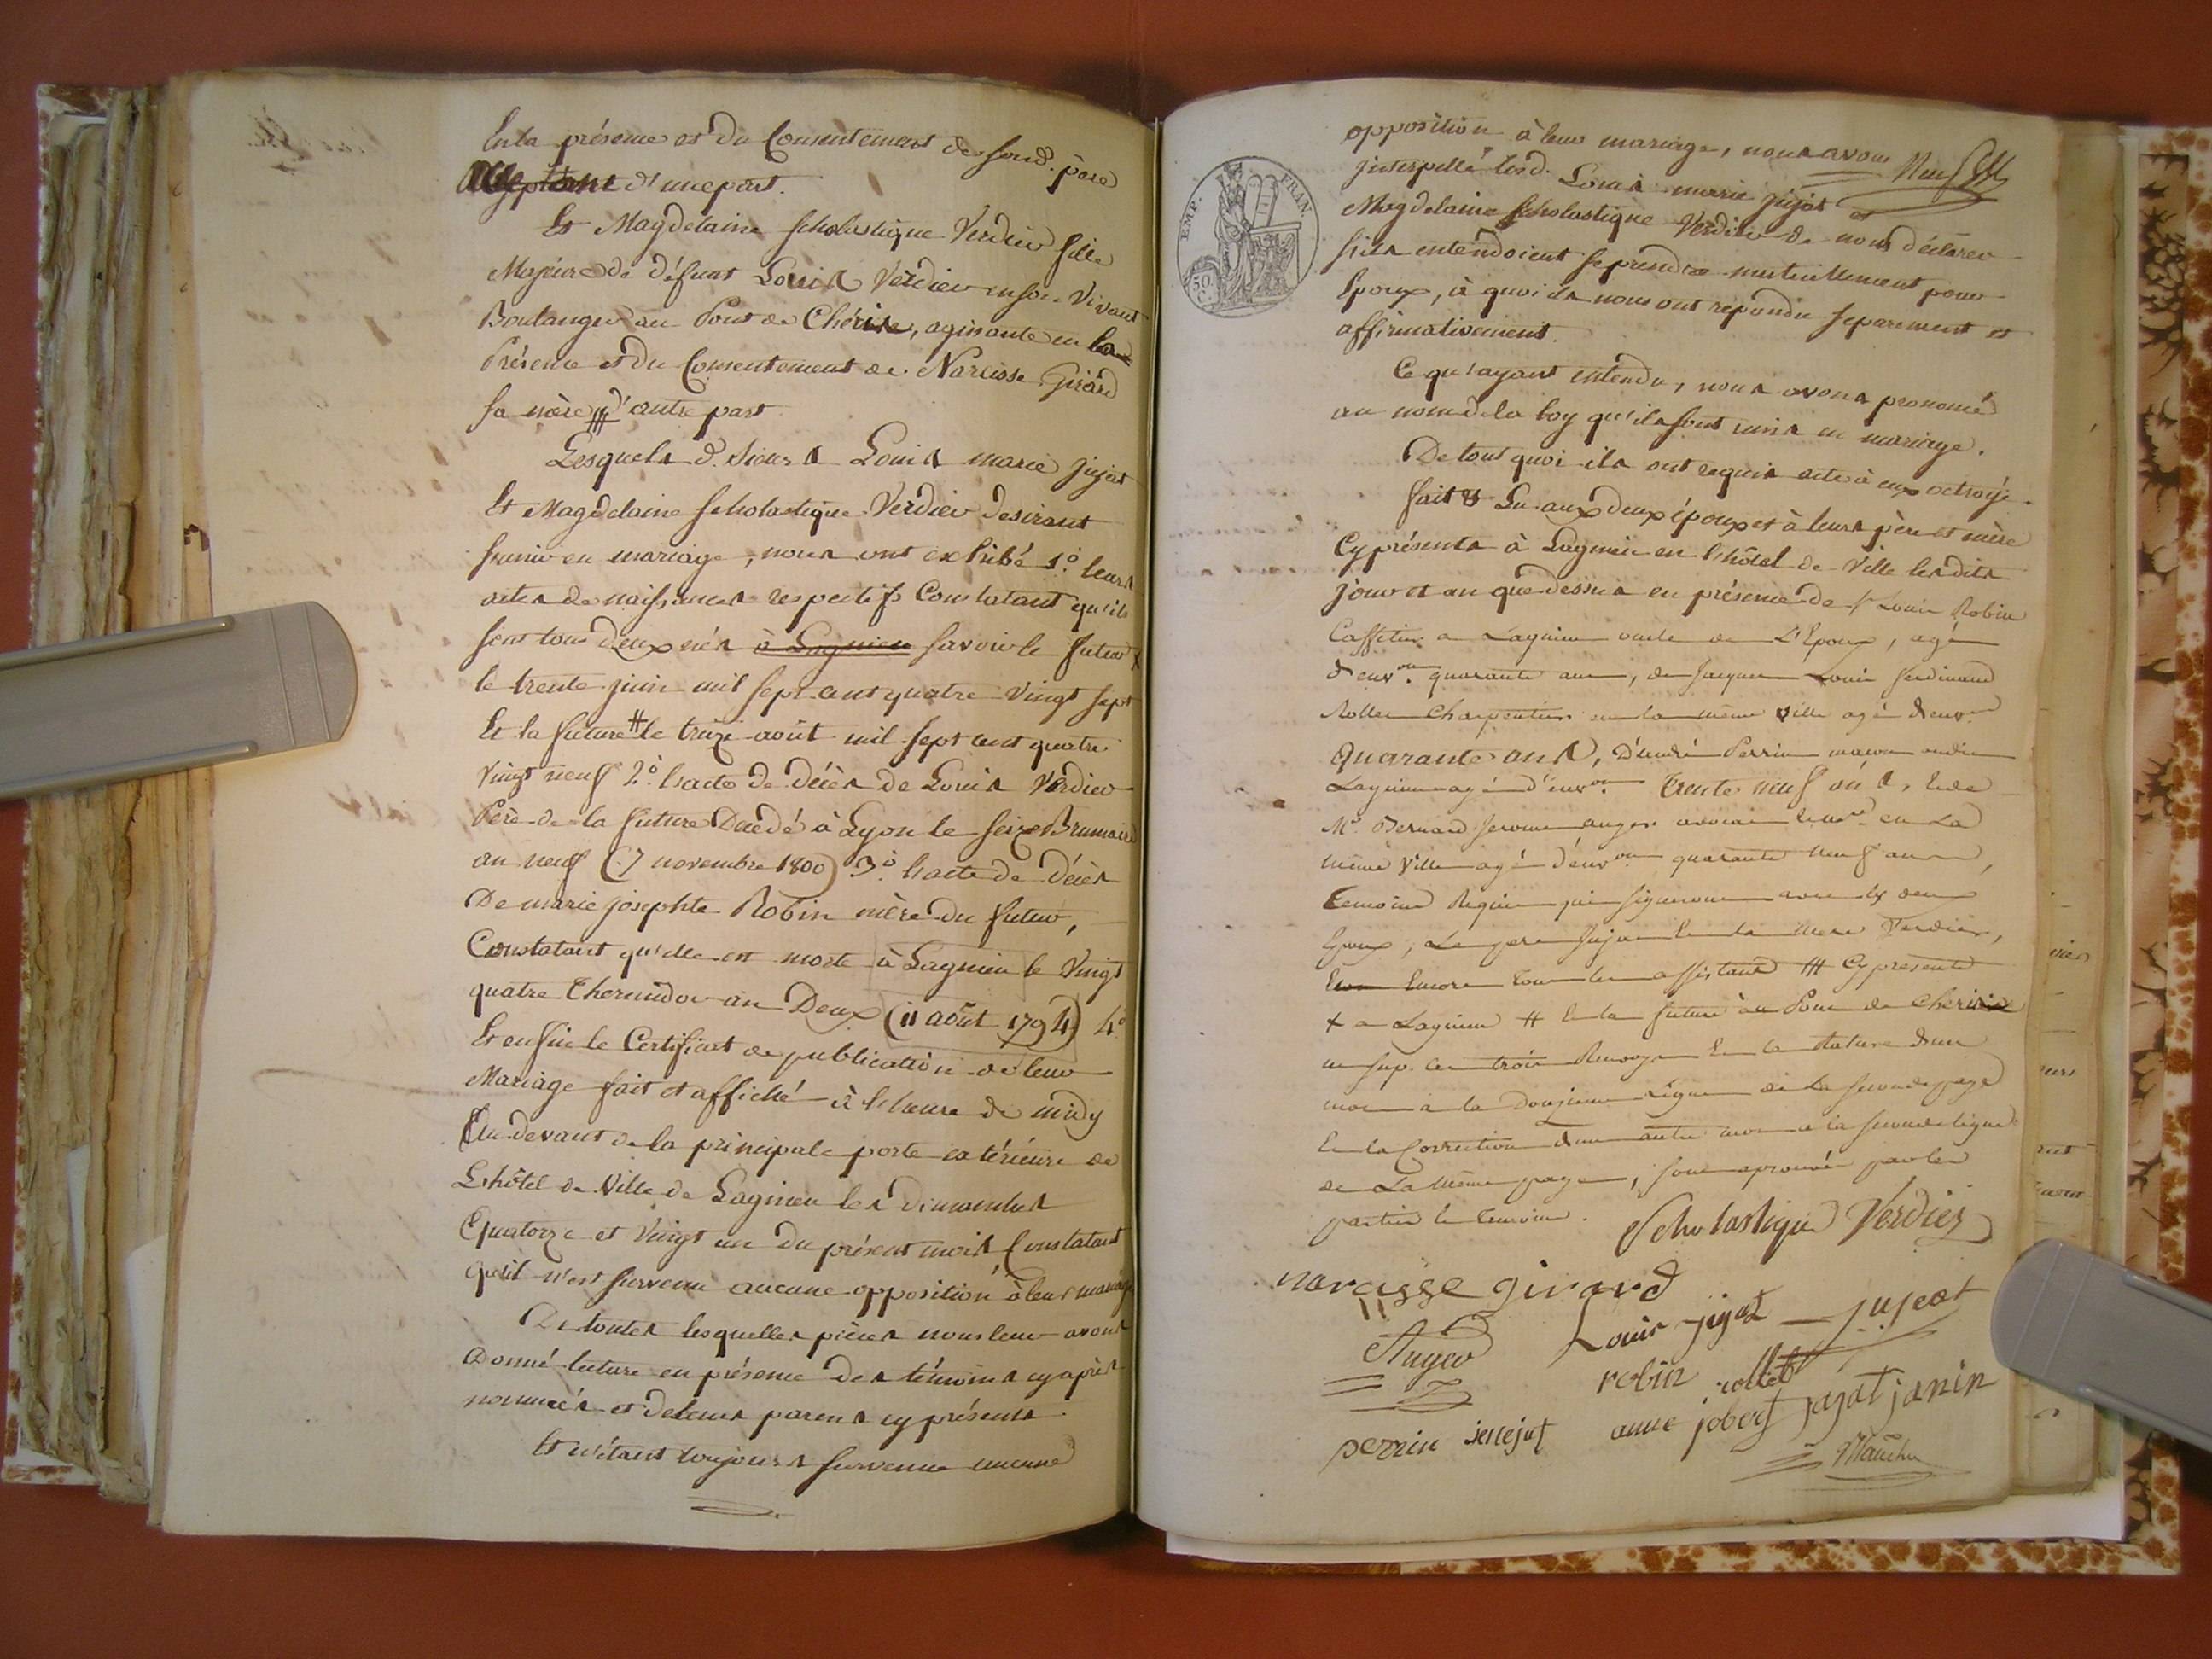 En la présence et du Consentement de sond. père
d'une part.
Et Magdelaine Scholastique Verdier fille
Majeure de défunt Louis Verdier en son Vivant
Boulanger au Pont de Chérui, agissante en la
Présence et du Consentement de Narcisse Girard
sa mère ⧻ d'autre part
Lesquels d. Sieurs Louis marie jujat
Et Magdelaine Scholastique Verdier desirant
s'unir en mariage, nous ont exhibé 1.° leurs
actes de naissances respectifs Constatant qu'ils
sont tous deux nés à Lagnieu savoir le futur X
le trente juin mil sept cent quatre vingt sept
Et la future # le treize août mil sept cent quatre
vingt neuf 2.° l'acte de décès de Louis Verdier
Père de la future Décédé à Lyon le seize Brumaire
an neuf (7 novembre 1800) 3.° l'acte de décès
De marie josephte Robin mère du futur,
Constatant qu'elle est morte à Lagnieu le Vingt
quatre Thermidor an Deux (11 août 1794) 4°
Et enfin le Certificat de publication de leur
Mariage fait et affiché à l'heure de midy
Au devant de la principale porte extérieure de
L'hôtel de Ville de Lagnieu les dimanches
Quatorze et Vingt un du présent mois, Constatant
qu'il n'est survenu aucune opposition à leur mariage
De toutes lesquelles pièces nous leur avons
Donné lecture en présence des témoins cy après
nommés et de leurs parens cy présents.
Et n'étant toujours survenue aucune
opposition à leur mariage, nous avons
interpellé lesd. Louis marie jujat et
Magdelaine Scholastique Verdier de nous déclarer
s'ils entendoient se prendre mutuellement pour
Epoux, à quoi ils nous ont repondu separement et
affirmativement.
Ce qu'ayant entendu, nous avons prononcé
au nom de la loy qu'ils sont unis en mariage.
De tout quoi ils ont requis acte à eux octroyé.
fait & Lu aux deux époux et à leurs père et mère
Cy présents à Lagnieu en l'hôtel de Ville lesdits
jour et an que dessus en présence de Sr Louis Robin
Caffetier a Lagnieu oncle de L'Epoux, agé
d'env.on quarante ans, de Jacques Louis ferdinand
Rollet Charpentier en la même Ville agé d'env.on
quarante ans, D'andré Perrin maçon audit
Lagnieu agé d'env.on trente neuf ans, & de
Mr. Bernard Jerome auger en La
même Ville agé d'env.on quarante neuf ans,
temoins Requis qui signeront avec les deux
Epoux, Le pere Jujat & la mere Verdier,
Encore tous les assistants ⧻ Cy presente
X a Lagnieu # Et la future au Pont de Cherui
les trois Renvoys Et la Rature d'un
mot a la Douzieme Ligne de la seconde page
Et la Correction d'un autre mot a la seconde ligne
de La même page, sont aprouvés par les
parties & temoins.
Scholastique Verdier
narcisse girard
Auger Louis jujat jujeat
robin rollet
perrin anne jobert jajat janin
EMP. FRAN.
50 C.